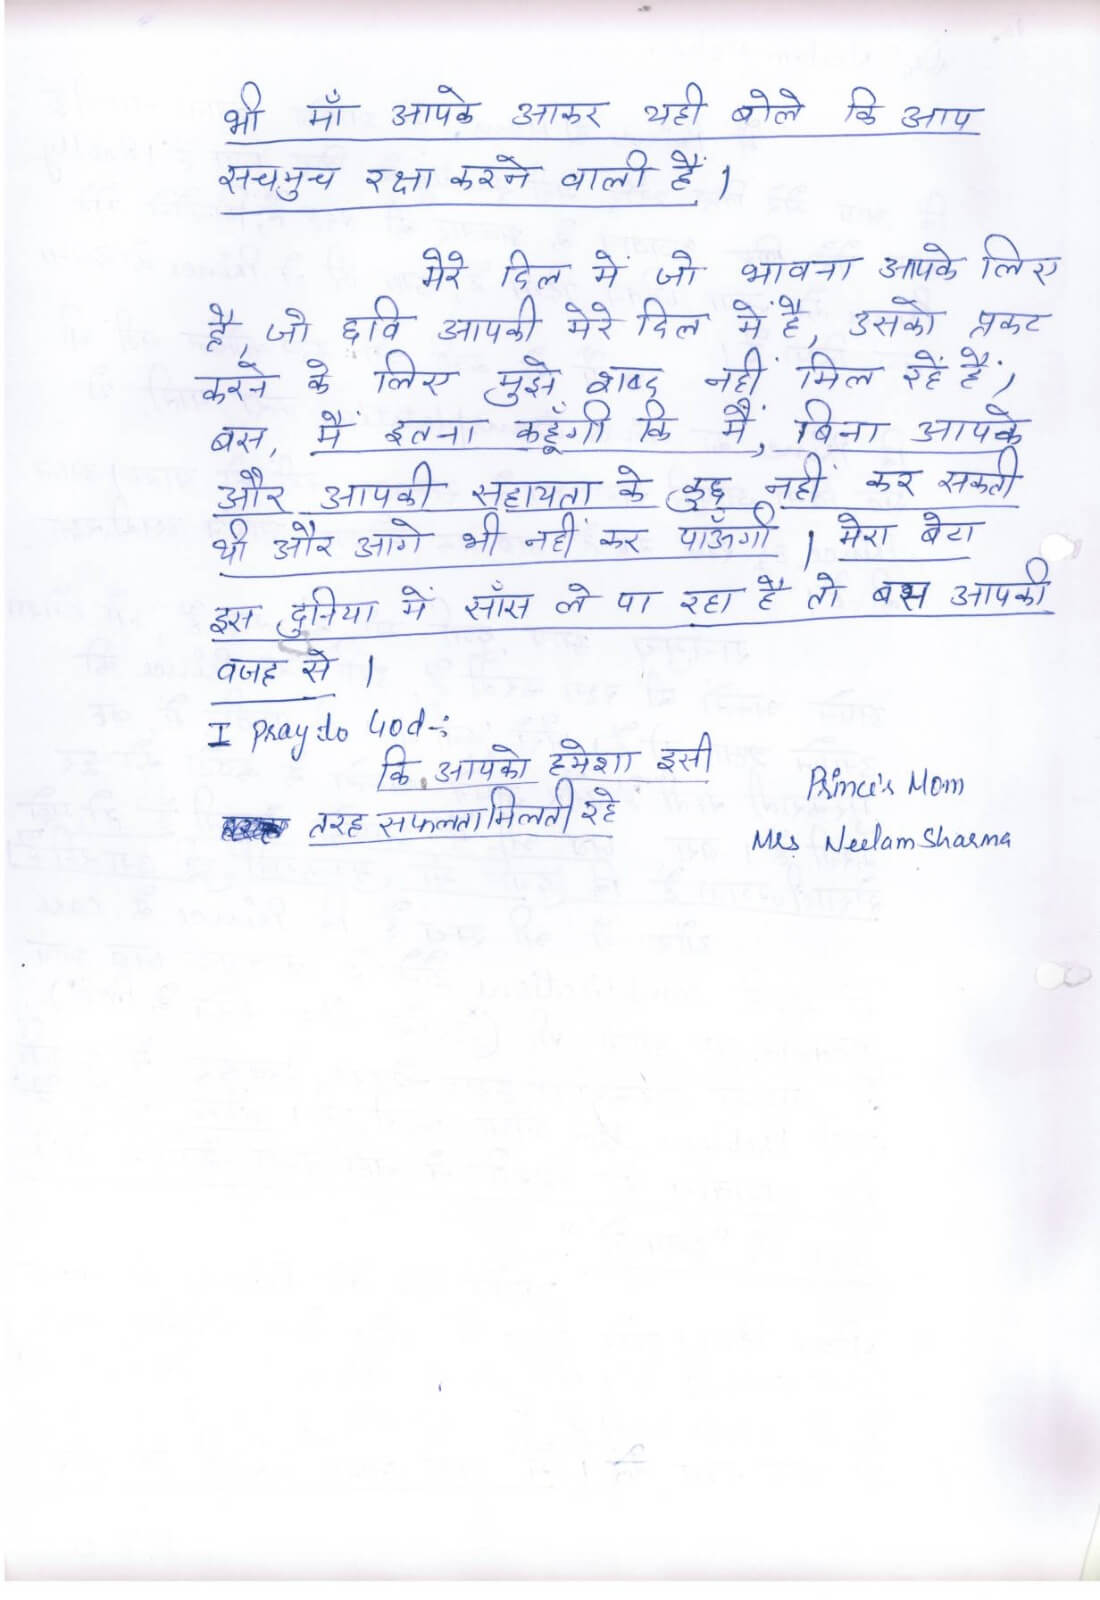 भी माँ आपके आकर यही बोले कि आप
सचमुच रक्षा करने वाली हैं।
मेरे दिल में जो भावना आपके लिए
है, जो छवि आपकी मेरे दिल में है, उसको प्रकट
करने के लिए मुझे शब्द नहीं मिल रहें हैं,
बस, मैं इतना कहूँगी कि मैं, बिना आपके
और आपकी सहायता के कुछ नहीं कर सकती
थी और आगे भी नहीं कर पाऊँगी। मेरा बेटा
इस दुनिया में साँस ले पा रहा है तो बस आपकी
वजह से।
I pray to God-:
कि आपको हमेशा इसी
तरह सफलता मिलती रहे
Prince's Mom
Mrs Neelam Sharma